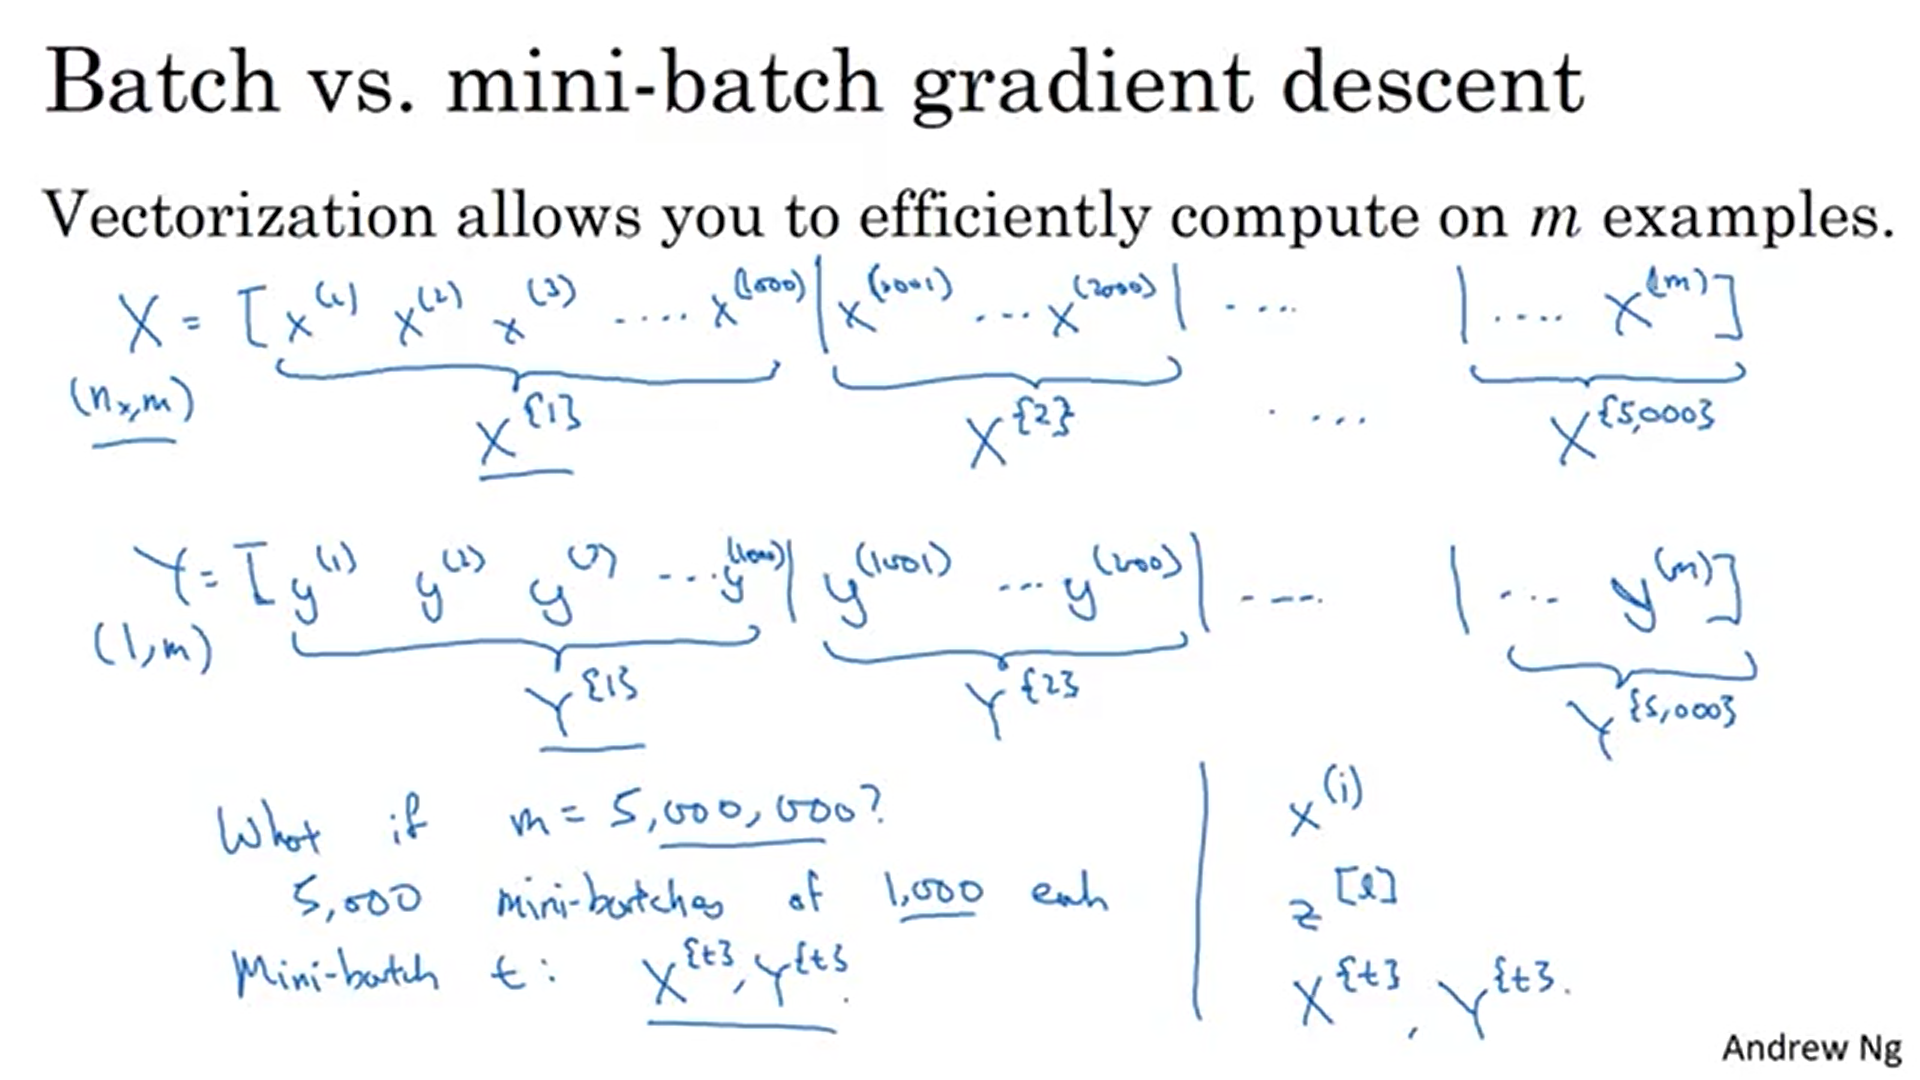 Batch vs. mini-batch gradient descent
Vectorization allows you to efficiently compute on m examples.
X = [x^(1) x^(2) x^(3) .... x^(1000) | x^(1001) ... x^(2000) | .... | .... x^(m)]
(n_x,m) X^{1} X^{2} .... X^{5,000}
Y = [y^(1) y^(2) y^(3) ... y^(1000) | y^(1001) ... y^(2000) | .... | ... y^(m)]
(1,m) Y^{1} Y^{2} Y^{5,000}
What if m = 5,000,000?
5,000 mini-batches of 1,000 each
Mini-batch t: X^{t}, Y^{t}.
x^(i)
z^[l]
X^{t}, Y^{t}.
Andrew Ng